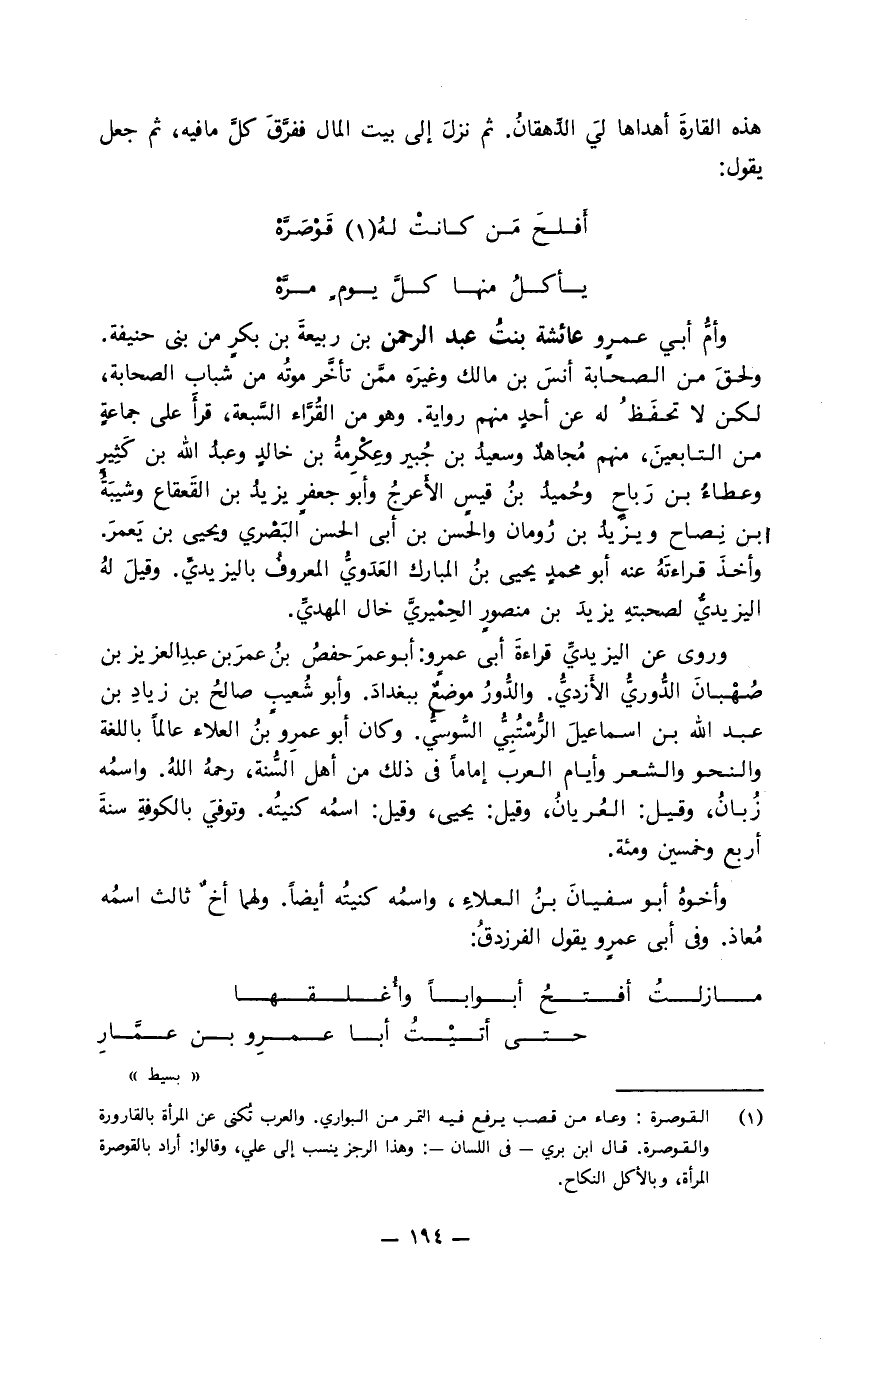 هذه القارةَ أهداها ليَ الدِّهقانُ. ثم نزلَ إلى بيت المال ففرَّقَ كلَّ مافيه، ثم جعل
يقول:
أَفلحَ مَن كانتْ لهُ(١) قَوْصَرَّهْ
يأكلُ منها كلَّ يومٍ مرَّهْ
وأمُّ أبي عمرٍو عائشة بنتُ عبد الرحمن بن ربيعةَ بن بكرٍ من بنى حنيفة.
ولحقَ من الصحابة أنسَ بن مالك وغيرَه ممَّن تأخَّر موتُه من شباب الصحابة،
لكن لا تحفَظُ له عن أحدٍ منهم رواية. وهو من القُرَّاء السَّبعة، قرأَ على جماعةٍ
من التابعينَ، منهم مُجاهدٌ وسعيدُ بن جُبير وعِكْرِمةُ بن خالدٍ وعبدُ الله بن كَثِيرٍ
وعطاءُ بن رَباحٍ وحُميدُ بنُ قيسٍ الأعرجُ وأبو جعفرٍ يزيدُ بن القَعقاع وشيبَةُ
ابن نِصاح ويزيدُ بن رُومان والحسن بن أبى الحسن البَصْري ويحيى بن يَعمرَ.
وأخذَ قراءتَهُ عنه أبو محمدٍ يحيى بنُ المبارك العَدَويُّ المعروفُ باليزيديِّ. وقيلَ لهُ
اليزيديُّ لصحبتهِ يزيدَ بن منصورٍ الحِمْيريَّ خال المهديِّ.
وروى عن اليزيديِّ قراءةَ أبى عمرٍو: أبوعمرَحفصُ بنُ عمرَبن عبدِالعزيز بن
صُهْبانَ الدُّوريُّ الأزديُّ. والدُّورُ موضعٌ ببغدادَ. وأبو شُعيبٍ صالحُ بن زيادِ بن
عبد الله بن اسماعيلَ الرُّسْتُبِيُّ السُّوسيُّ. وكان أبو عمرِو بنُ العلاء عالماً باللغة
والنحو والشعر وأيام العرب إماماً فى ذلك من أهل السُّنة، رحمهُ اللهُ. واسمُه
زُبانُ، وقيل: العُريانُ، وقيل: يحيى، وقيل: اسمُه كنيتُه. وتوفيَ بالكوفةِ سنةَ
أربع وخمسين ومئة.
وأخوهُ أبو سفيانَ بنُ العلاءِ، واسمُه كنيتُه أيضاً. ولهما أخٌ ثالث اسمُه
مُعاذ. وفى أبى عمرٍو يقول الفرزدقُ:
مازلتُ أفتحُ أبواباً وأُغلقها
حتى أتيْتُ أبا عمرِو بن عمَّارِ
« بسيط »
(١) القوصرة : وعاء من قصب يرفع فيه التمر من البواري. والعرب تُكنى عن المرأة بالقارورة
والقوصرة. قال ابن بري – فى اللسان –: وهذا الرجز ينسب إلى علي، وقالوا: أراد بالقوصرة
المرأة، وبالأكل النكاح.
– ١٩٤ –